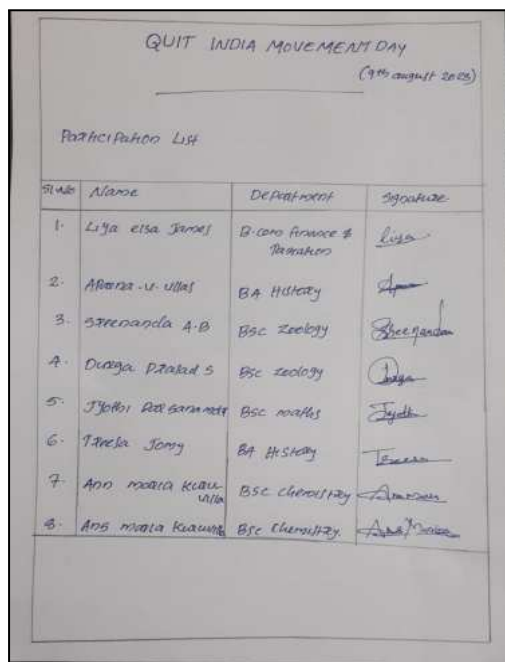 QUIT INDIA MOVEMENT DAY
(9th august 2023)
Participation List
Sl.No Name Department Signature
1. Liya elsa James B.com Finance & Taxation Liya
2. Aparna.U.Ullas BA History
3. Sreenanda A.B BSc Zoology Sreenanda
4. Durga Prasad S BSc zoology Durga
5. Jyothi BSc maths Jyothi
6. Teresa Jomy BA History Teresa
7. Ann maria BSc chemistry
8. maria BSc chemistry.